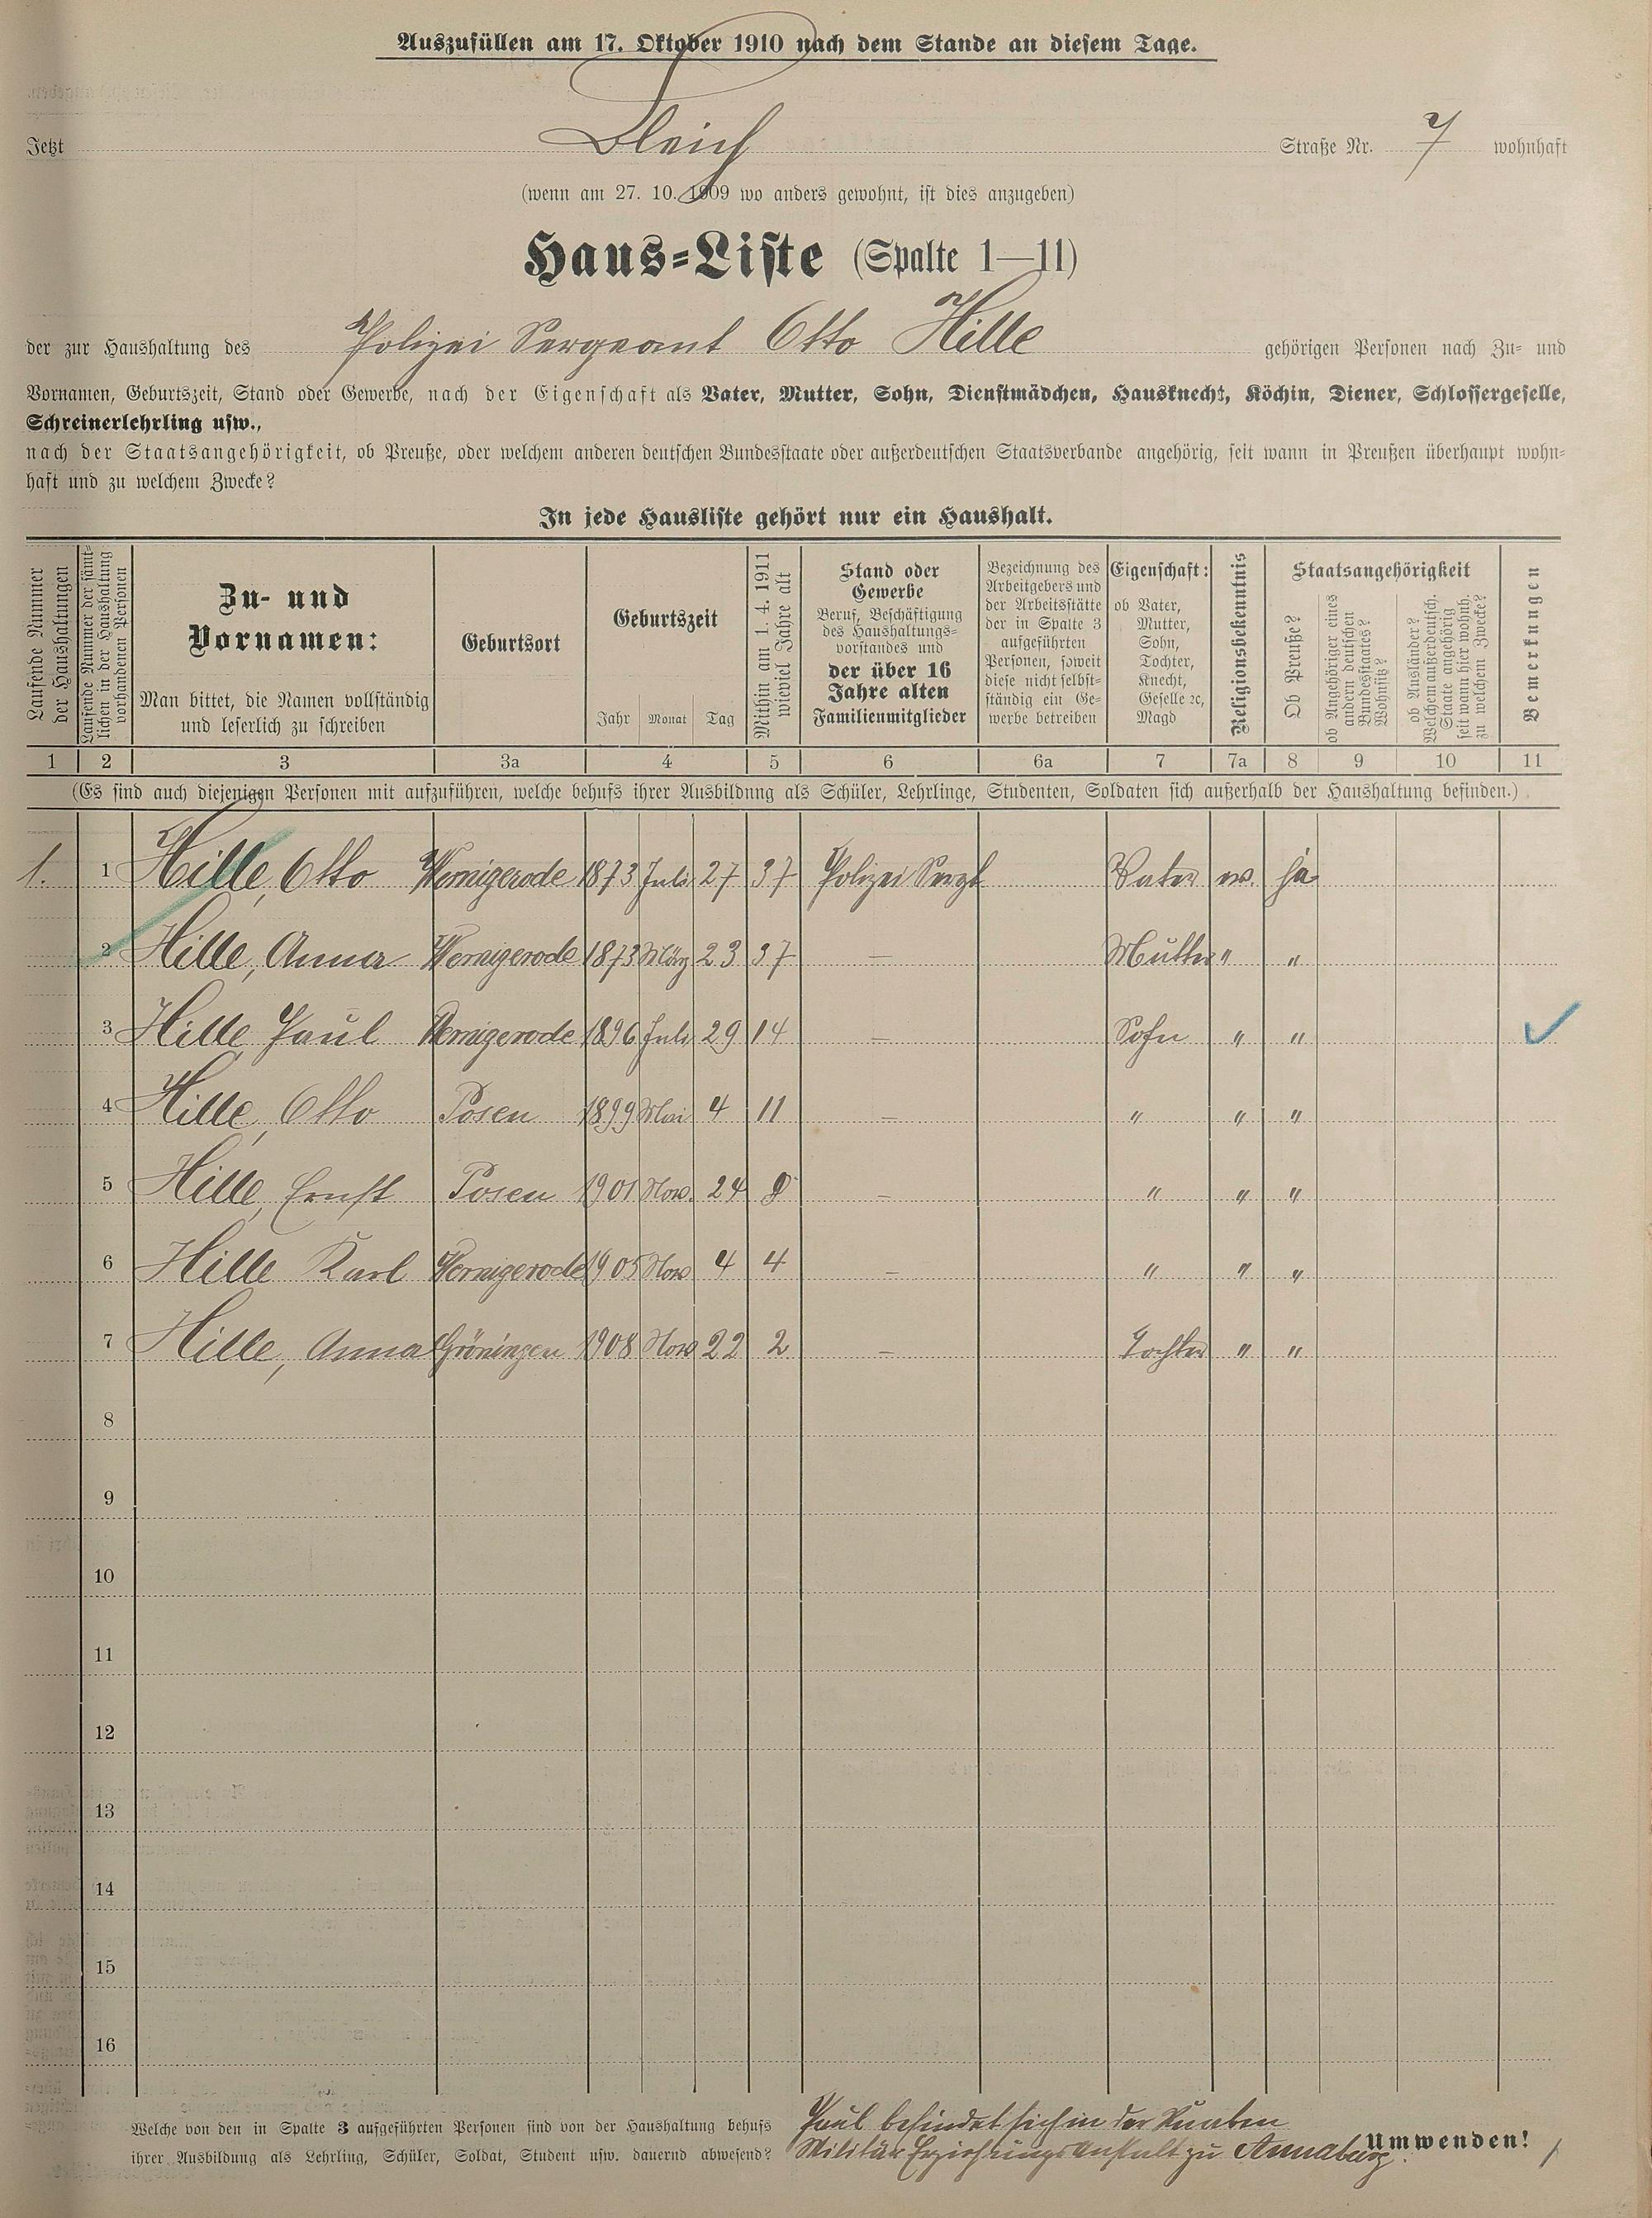 Auszufüllen am 17. Oktober 1910 nach dem Stande an diesem Tage.
Jetzt Bleich Straße Nr. 7 wohnhaft
(wenn am 27. 10. 1909 wo anders gewohnt, ist dies anzugeben)
Haus-Liste (Spalte 1—11)
der zur Haushaltung des Polizei Sergeant Otto Hille gehörigen Personen nach Zu- und
Vornamen, Geburtszeit, Stand oder Gewerbe, nach der Eigenschaft als Vater, Mutter, Sohn, Dienstmädchen, Hausknecht, Köchin, Diener, Schlossergeselle,
Schreinerlehrling usw.,
nach der Staatsangehörigkeit, ob Preuße, oder welchem anderen deutschen Bundesstaate oder außerdeutschen Staatsverbande angehörig, seit wann in Preußen überhaupt wohn-
haft und zu welchem Zwecke?
In jede Hausliste gehört nur ein Haushalt.
Laufende Nummer
der Haushaltungen
Laufende Nummer der sämt-
lichen in der Haushaltung
vorhandenen Personen
Zu- und
Vornamen:
Man bittet, die Namen vollständig
und leserlich zu schreiben
Geburtsort
Geburtszeit
Jahr Monat Tag
Mithin am 1. 4. 1911
wieviel Jahre alt
Stand oder
Gewerbe
Beruf, Beschäftigung
des Haushaltungs-
vorstandes und
der über 16
Jahre alten
Familienmitglieder
Bezeichnung des
Arbeitgebers und
der Arbeitsstätte
der in Spalte 3
aufgeführten
Personen, soweit
diese nicht selbst-
ständig ein Ge-
werbe betreiben
Eigenschaft:
ob Vater,
Mutter,
Sohn,
Tochter,
Knecht,
Geselle ec,
Magd
Religionsbekenntnis
Staatsangehörigkeit
Ob Preuße?
ob Angehöriger eines
andern deutschen
Bundesstaates?
Wohnsitz?
ob Ausländer?
Welchem außerdeutsch.
Staate angehörig
seit wann hier wohnh.
zu welchem Zwecke?
Bemerkungen
1 2 3 3a 4 5 6 6a 7 7a 8 9 10 11
(Es sind auch diejenigen Personen mit aufzuführen, welche behufs ihrer Ausbildung als Schüler, Lehrlinge, Studenten, Soldaten sich außerhalb der Haushaltung befinden.)
1. 1 Hille, Otto Wernigerode 1873 Juli 27 37 Polizei Sergt Vater ev. ja
2 Hille, Anna Wernigerode 1873 März 23 37 — Mutter " "
3 Hille Paul Wernigerode 1896 Juli 29 14 — Sohn " "
4 Hille, Otto Posen 1899 Mai 4 11 — " " "
5 Hille, Ernst Posen 1901 Nov. 24 9 — " " "
6 Hille Karl Wernigerode 1905 Nov 4 4 — " " "
7 Hille, Anna Gröningen 1908 Nov 22 2 — Tochter " "
8
9
10
11
12
13
14
15
16
Welche von den in Spalte 3 aufgeführten Personen sind von der Haushaltung behufs
ihrer Ausbildung als Lehrling, Schüler, Soldat, Student usw. dauernd abwesend?
Paul befindet sich in der Knaben
Militär Erziehungsanstalt zu Annaburg.
Umwenden!